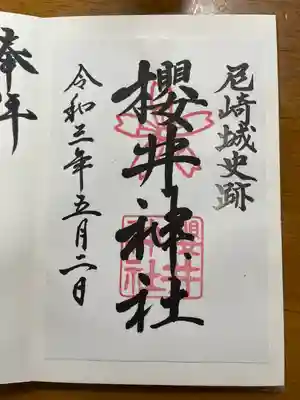 尼崎城史跡
櫻井神社
令和三年五月二日
櫻井
神社